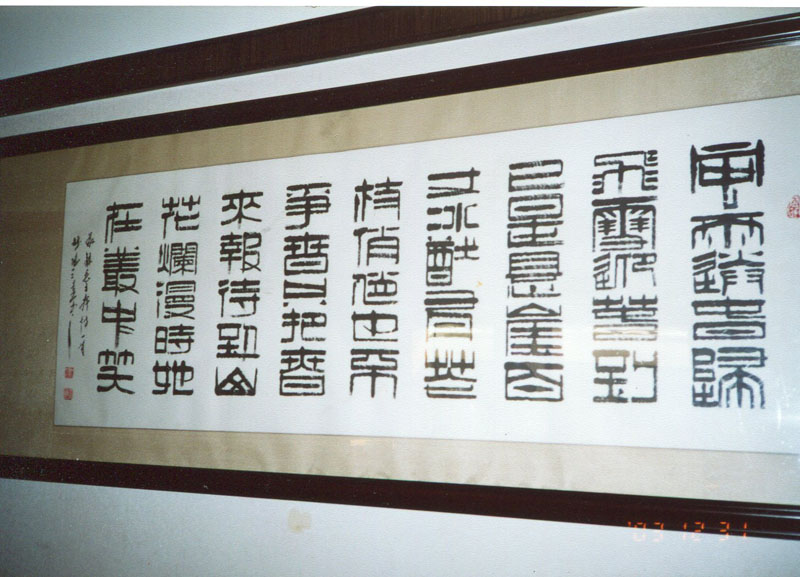 風雨送春歸
飛雪迎春到
已是懸崖百
丈冰猶有花
枝俏俏也不
爭春只把春
來報待到山
花爛漫時她
在叢中笑
'03 12 31